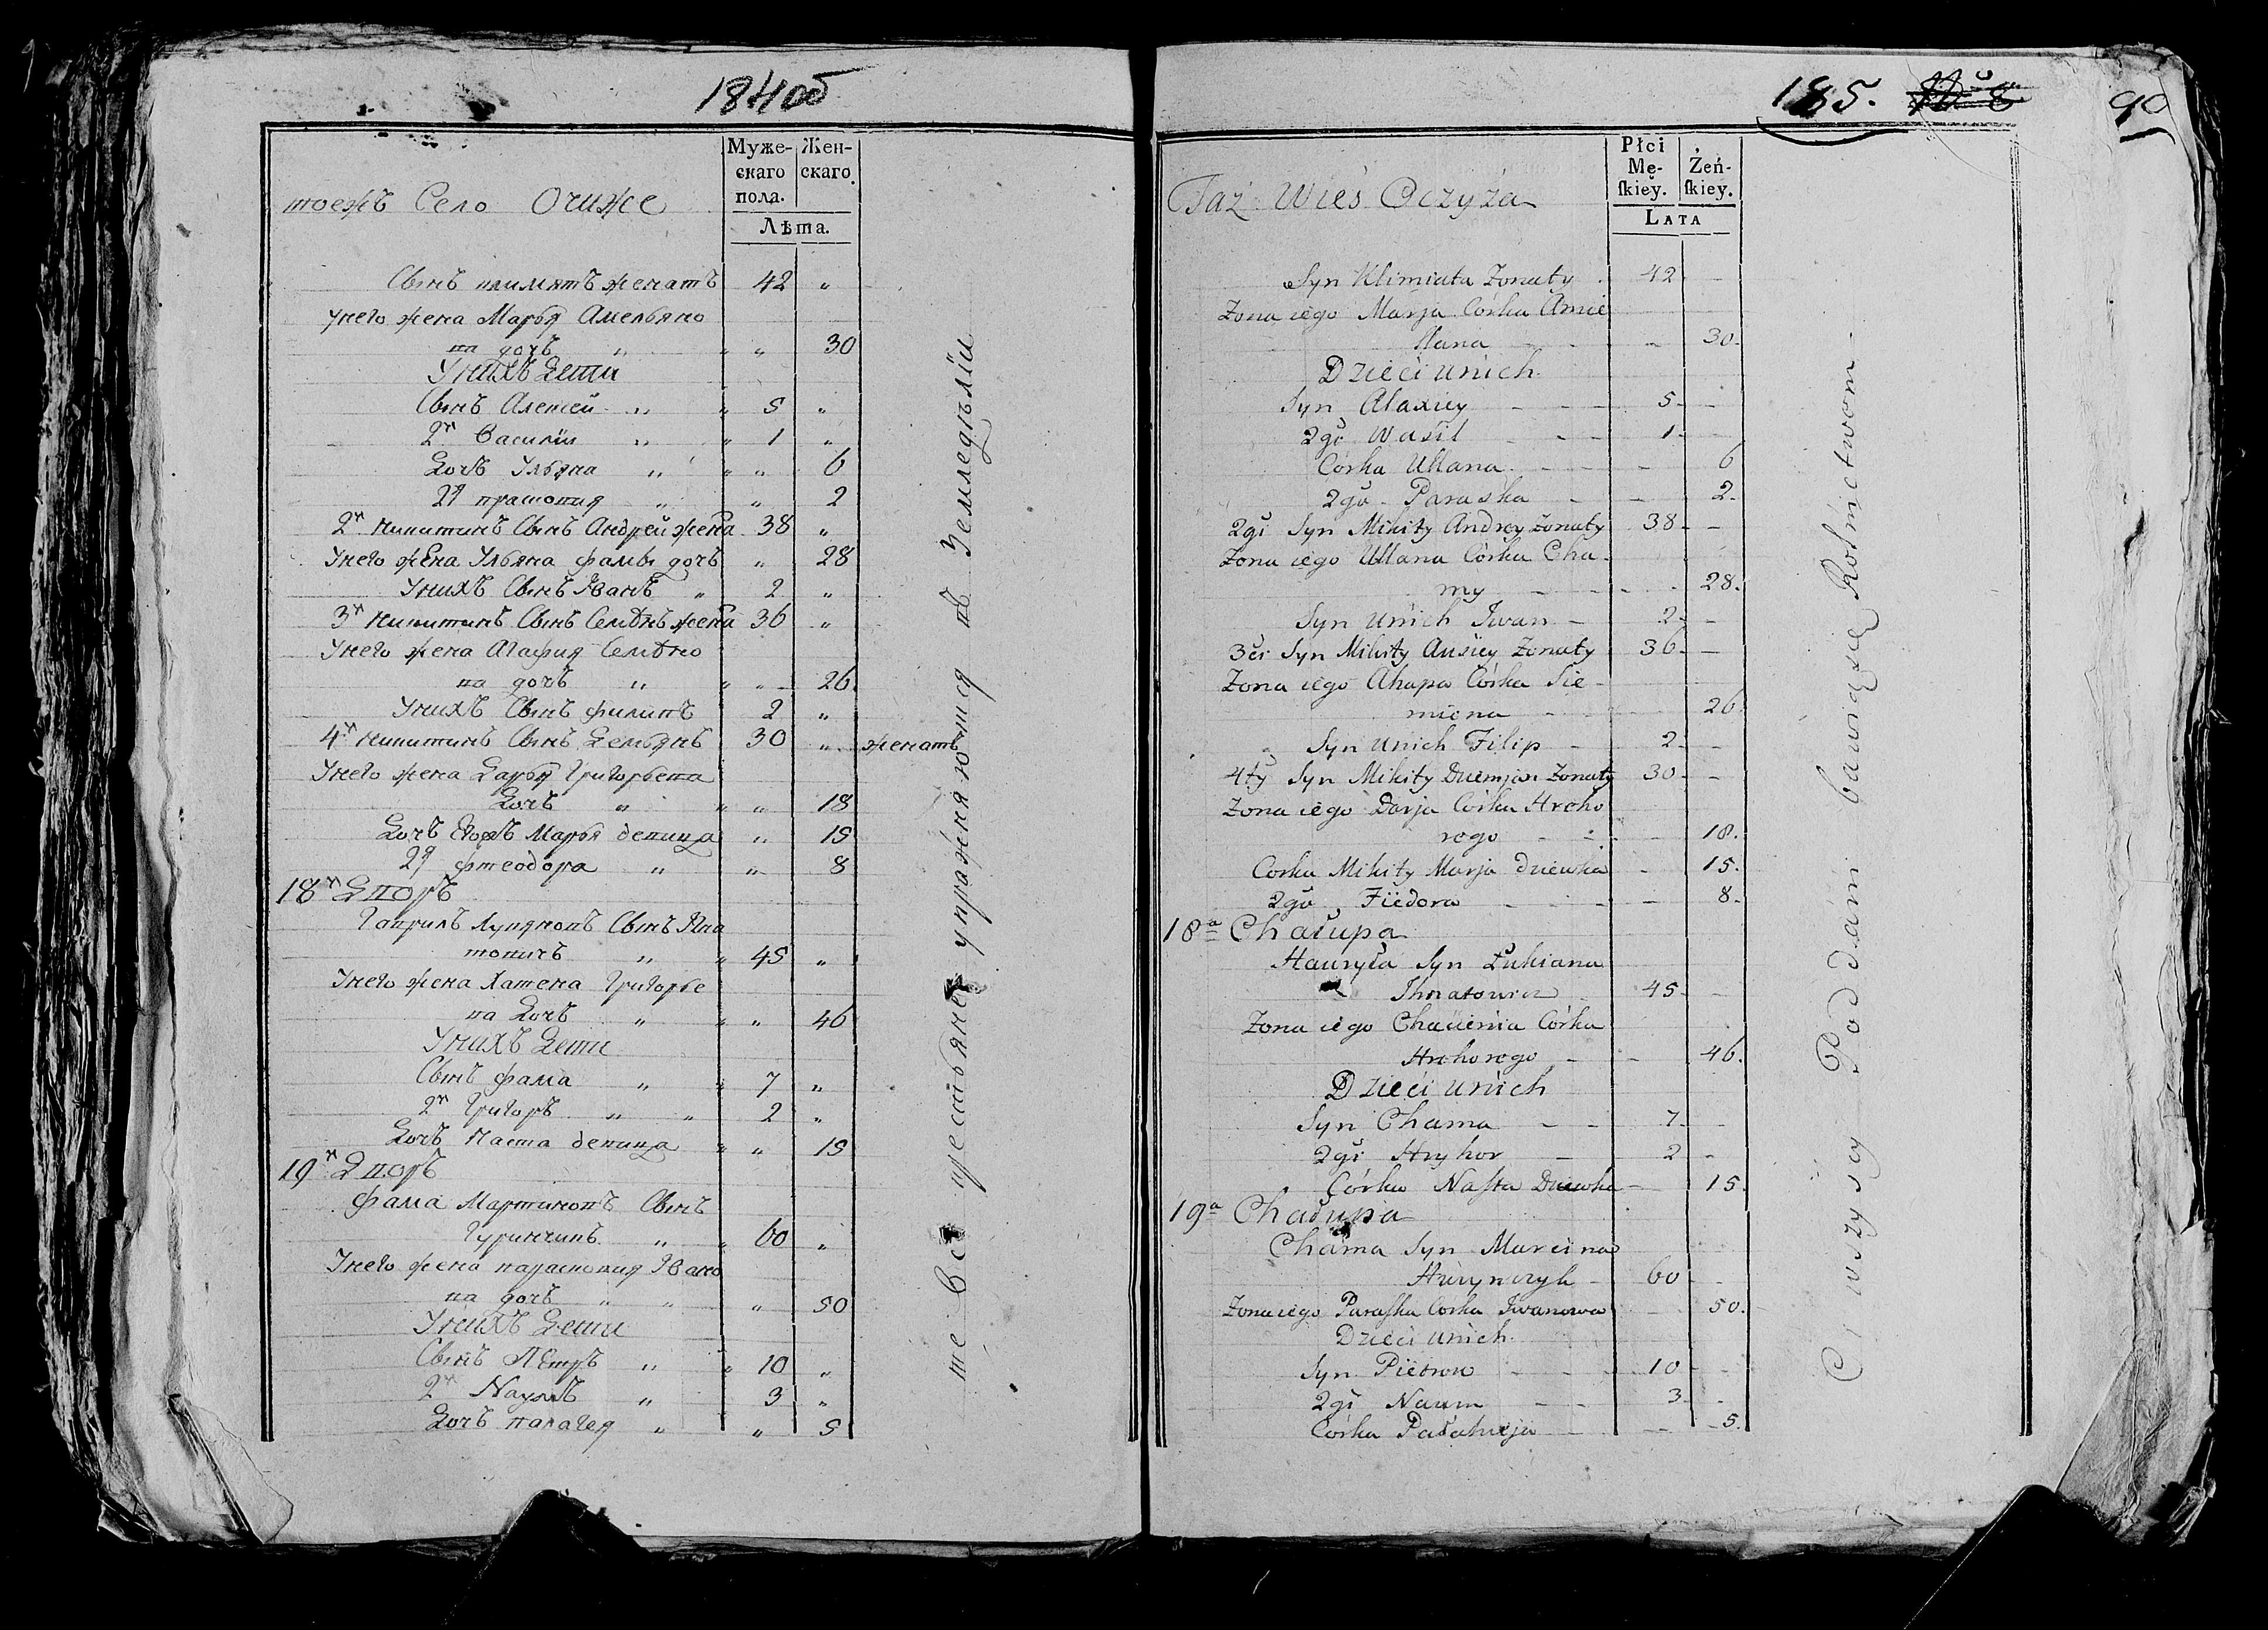 184об
Муже-
скаго
пола.
Жен-
скаго.
Лѣта.
тоежъ Село Очиже
Сынъ климятъ женатъ 42 "
унего жена Марья Амельяно
ва дочъ " " " 30
Унихъ Дети
Сынъ Алексей " " 5 "
2й Василiи " " 1 "
Дочь Ульяна " " " 6
2я прасковия " " 2
2й Никитинъ Сынъ Андрей жена 38 "
Унего жена Ульяна фамы дочъ " 28
Унихъ Сынъ Иванъ " 2 "
3й Никитинъ Сынъ жена 36 "
Унего жена Агафия Семіоно
ва дочъ " " " 26
Унихъ Сынъ филипъ 2 "
4й Никитинъ Сынъ Демьянъ 30 " женатъ
Унего жена Дарья Григорьева
Дочъ " " " 18
Дочъ Марья девица " 15
2я фтеодора " " 8
18й Дворъ
Гаврилъ Лукяновъ Сынъ Игна
товичъ " " 45 "
Унего жена Григорье
ва Дочъ " " " 46
Унихъ Дети
Сынъ фама " " 7 "
2й Григоръ " " 2 "
Дочъ Наста девица " " 15
19й Дворъ
фама Мартиновъ Сынъ
Гуринчикъ " " 60 "
Унего жена парасковия Ивано
ва дочъ " " " 50
Унихъ Дети
Сынъ Пётръ " " 10 "
2й Наумъ " 3 "
Дочъ палагея " " 5
те Все упражняются въ Земледѣлiи
185.
90
Płci
Mę-
skiey.
Żeń-
skiey.
LATA
Taż Wieś Oczyża
Syn Klimiata Zonaty 42 -
Zona iego Marja Córka Amie
llana - - 30
Dzieci unich
Syn Alaxiey - - 5 -
2gi Wasil - - 1 -
Córka Ullana - - 6
2ga Paraska - - 2
2gi Syn Mikity Andrey zonaty 38 -
Zona iego Ullana Córka Cha-
my - - 28.
Syn unich Iwan - 2 -
3ci Syn Mikity Ausiey Zonaty 36 -
Zona iego Ahapa Córka Sie-
miena - - 26
Syn unich Filip - 2 -
4ty Syn Mikity Dziemjan Zonaty 30 -
Zona iego Darja Córka Hreho
rego - - 18.
Corka Mikity Marja dziewka - 15.
2ga Fiedora - - 8.
18a Chałupa
Hauryła Syn Łukiana
Ihnatowicz 45 -
Zona iego Córka
Hrehorego - - 46.
Dzieci unich
Syn Chama - - 7 -
2gi Hryhor - 2 -
Córka Nasta Dziewka - 15
19a Chałupa
Chama Syn Marcina
Hurynczyk - 60 -
Zona iego Paraska Corka Iwanowa - 50.
Dzieci unich
Syn Piotra - - 10 -
2gi Naum - - 3 -
Córka Pałahieja - - 5.
Ci wszyscy Poddani bawią się Rolnictwem